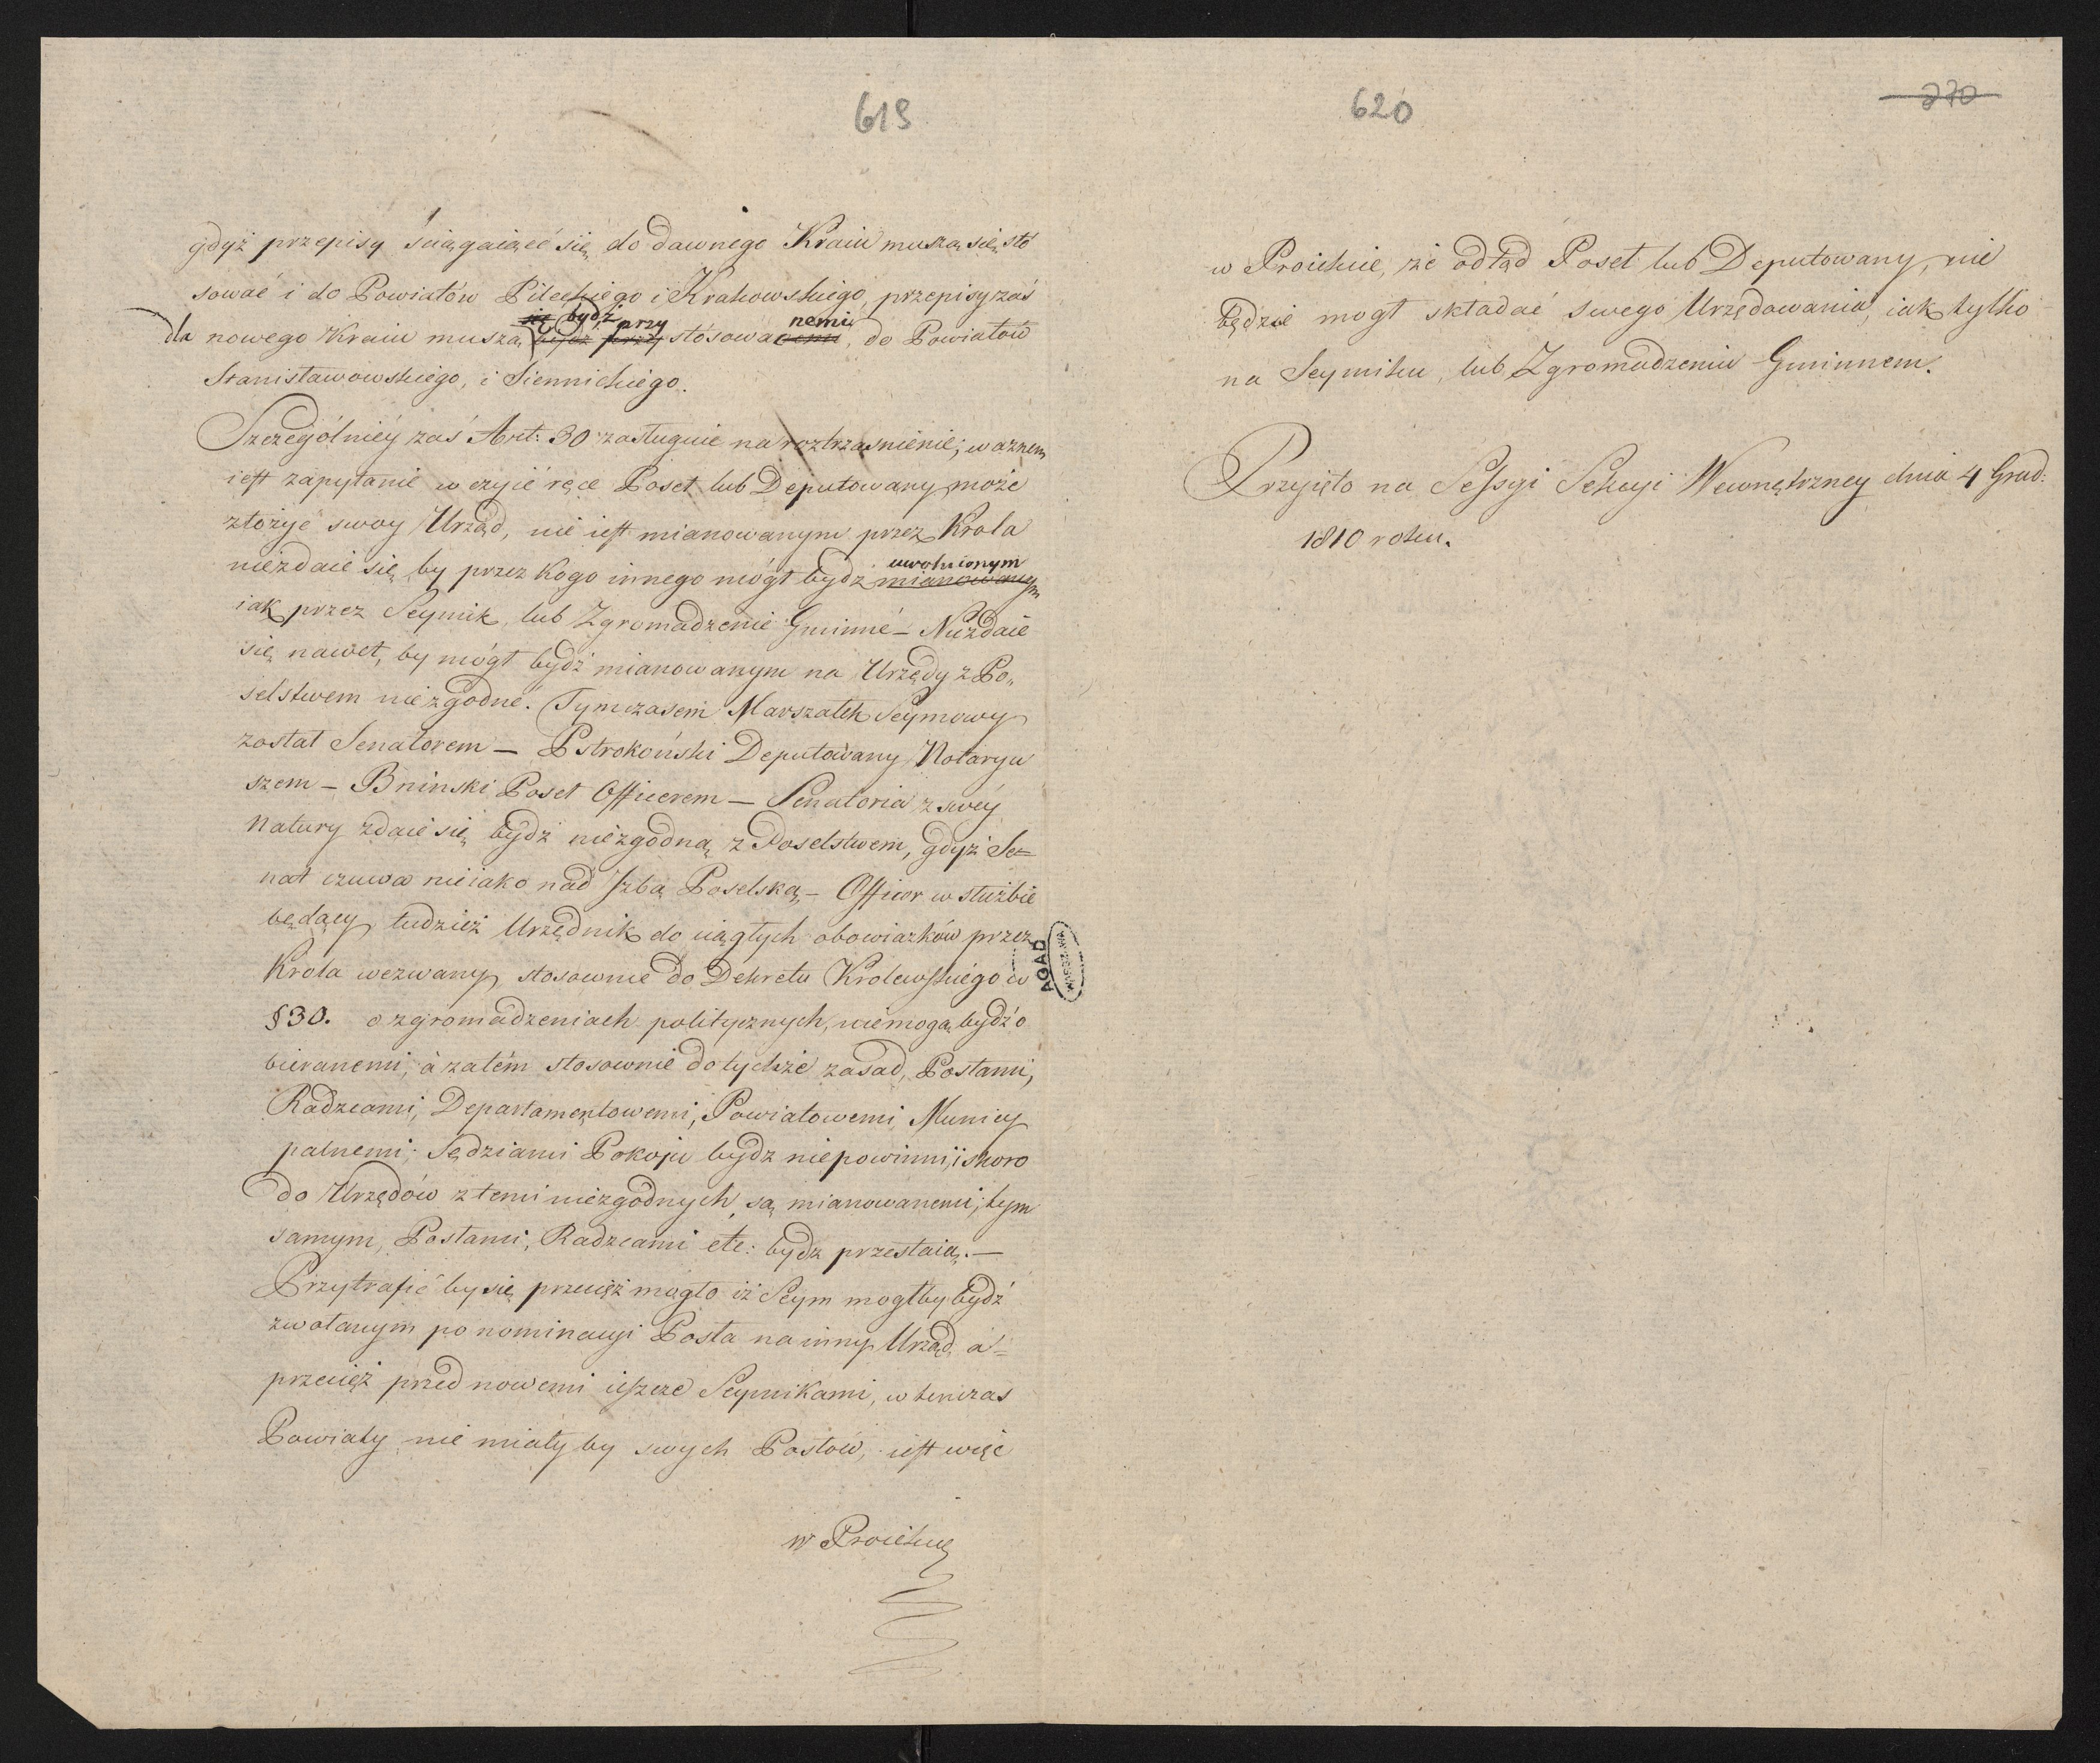 619
gdyż przepisy ściągaiące się do dawnego Kraiu muszą się sto
sować i do Powiatów Pileckiego i Krakowskiego, przepisy zaś
się bydź przy nemi
dla nowego Kraiu muszą bydź przy stósowa, do Powiatów
Stanisławowskiego, i Siennickiego.
Szczególniéy zaś Art: 30 zasługuie na roztrzasnienie; ważnem
iest zapytanie w czyie ręce Poseł lub Deputowany może
złożyć swoy Urząd, nie iest mianowanym przez Krola
niezdaie się by przez kogo innego mógł bydź mianowanym
uwolnionym
iak przez Seymik, lub Zgromadzenie Gminné – Niezdaie
się nawet, by mógł bydź mianowanym na Urzędy z Po„
selstwem niezgodné. Tymczasem Marszałek Seymowy
został Senatorem – Pstrokoński Deputowany Notaryu
szem – Bninski Poseł Officerem – Senatoria z swéy
natury zdaie się bydź niezgodną z Poselstwem, gdyż Se=
nat czuwa nieiako nad Izbą Poselską – Officer w służbie
będący, tudzież Urzędnik do ciągłych obowiazków przez
Krola wezwany stosownie do Dekretu Krolewskiego w
§ 30. o zgromadzeniach politycznych, niemogą bydź o
bieranemi, à zatém stosownie do tychże zasad, Posłami,
Radzcami, Departamentowemi, Powiatowemi Municy
palnemi; Sędziami Pokoju bydz niepowinni, i skoro
do Urzędów z temi niezgodnych, są mianowanemi; tym
samym, Posłami, Radzcami etc: bydz przestaią. –
Przytrafić by się przecięż mogło iż Seym mogłby bydź
zwołanym po nominacyi Posła na inny Urząd a=
przecięż przed nowemi ieszcze Seymikami, w tenczas
Powiaty nie miały by swych Posłów, iest więc
w Proiekcie
AGAD
WARSZAWA
620
270
w Proiekcie, że odtąd Poseł lub Deputowany, nie
będzie mogł składać swego Urzędowania, iak tylko
na Seymiku, lub Zgromadzeniu Gminnem.
Przyięto na Sessyi Sekcyi Wewnętrzney dnia 4 Grud:
1810 roku.